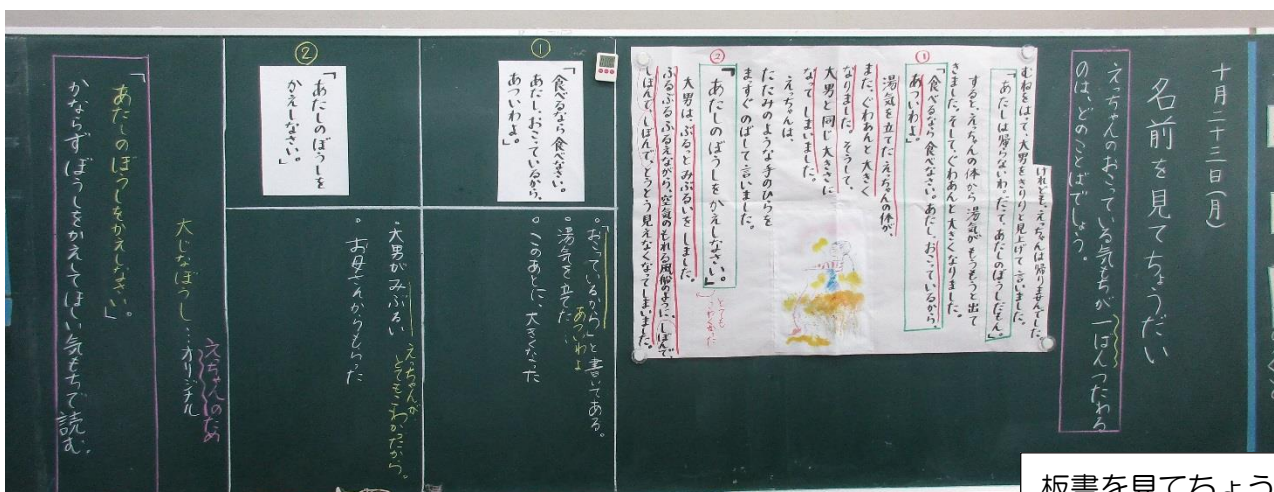 十月二十三日(月)
名前を見てちょうだい
えっちゃんのおこっている気もちが一ばんつたわる
のは、どのことばでしょう。
けれども、えっちゃんは帰りませんでした。
むねをはって、大男をきりりと見上げて言いました。
「あたしは帰らないわ。だって、あたしのぼうしだもん。」
すると、えっちゃんの体から湯気がもうもうと出て
きました。そして、ぐわあんと大きくなりました。
①
「食べるなら食べなさい。あたし、おこっているから、
あついわよ。」
湯気を立てたえっちゃんの体が、
また、ぐわあんと大きく
なりました。そうして、
大男と同じ大きさに
なってしまいました。
えっちゃんは、
たたみのような手のひらを
まっすぐのばして言いました。
②
「あたしのぼうしをかえしなさい。」
とても
こわかった
大男は、ぶるっとみぶるいをしました。
ぶるぶるふるえながら、空気のもれる風船のように、しぼんで、
しぼんで、しぼんで、とうとう見えなくなってしまいました。
①
「食べるなら食べなさい。
あたし、おこっているから、
あついわよ。」
。「おこっているから」と書いてある。
あついわよ
。湯気を立てた
。このあとに、大きくなった
②
「あたしのぼうしを
かえしなさい。」
。大男がみぶるい
えっちゃんが
とてもこわかったから。
。お母さんからもらった
えっちゃんのため
大じなぼうし…オリジナル
「あたしのぼうしをかえしなさい」。
かならずぼうしをかえしてほしい気もちで読む。
板書を見てちょう